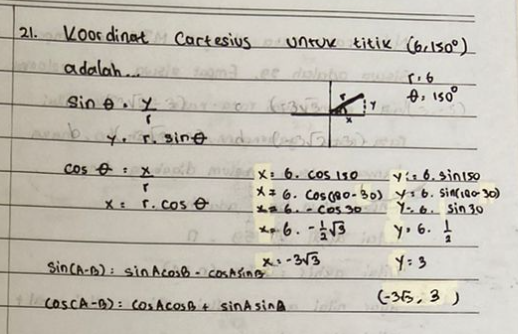 21. Koordinat Cartesius untuk titik (6,150°)
adalah...
r = 6
θ = 150°
r
y
x
Sin θ = y/r
y = r. sin θ
cos θ = x/r
x = r. cos θ
x = 6. cos 150
x = 6. cos(180-30)
x = 6. -cos 30
x = 6. -1/2√3
x = -3√3
y = 6. sin 150
y = 6. sin(180-30)
y = 6. sin 30
y = 6. 1/2
y = 3
(-3√3, 3)
Sin(A-B) = sin A cos B - cos A sin B
cos(A-B) = cos A cos B + sin A sin B